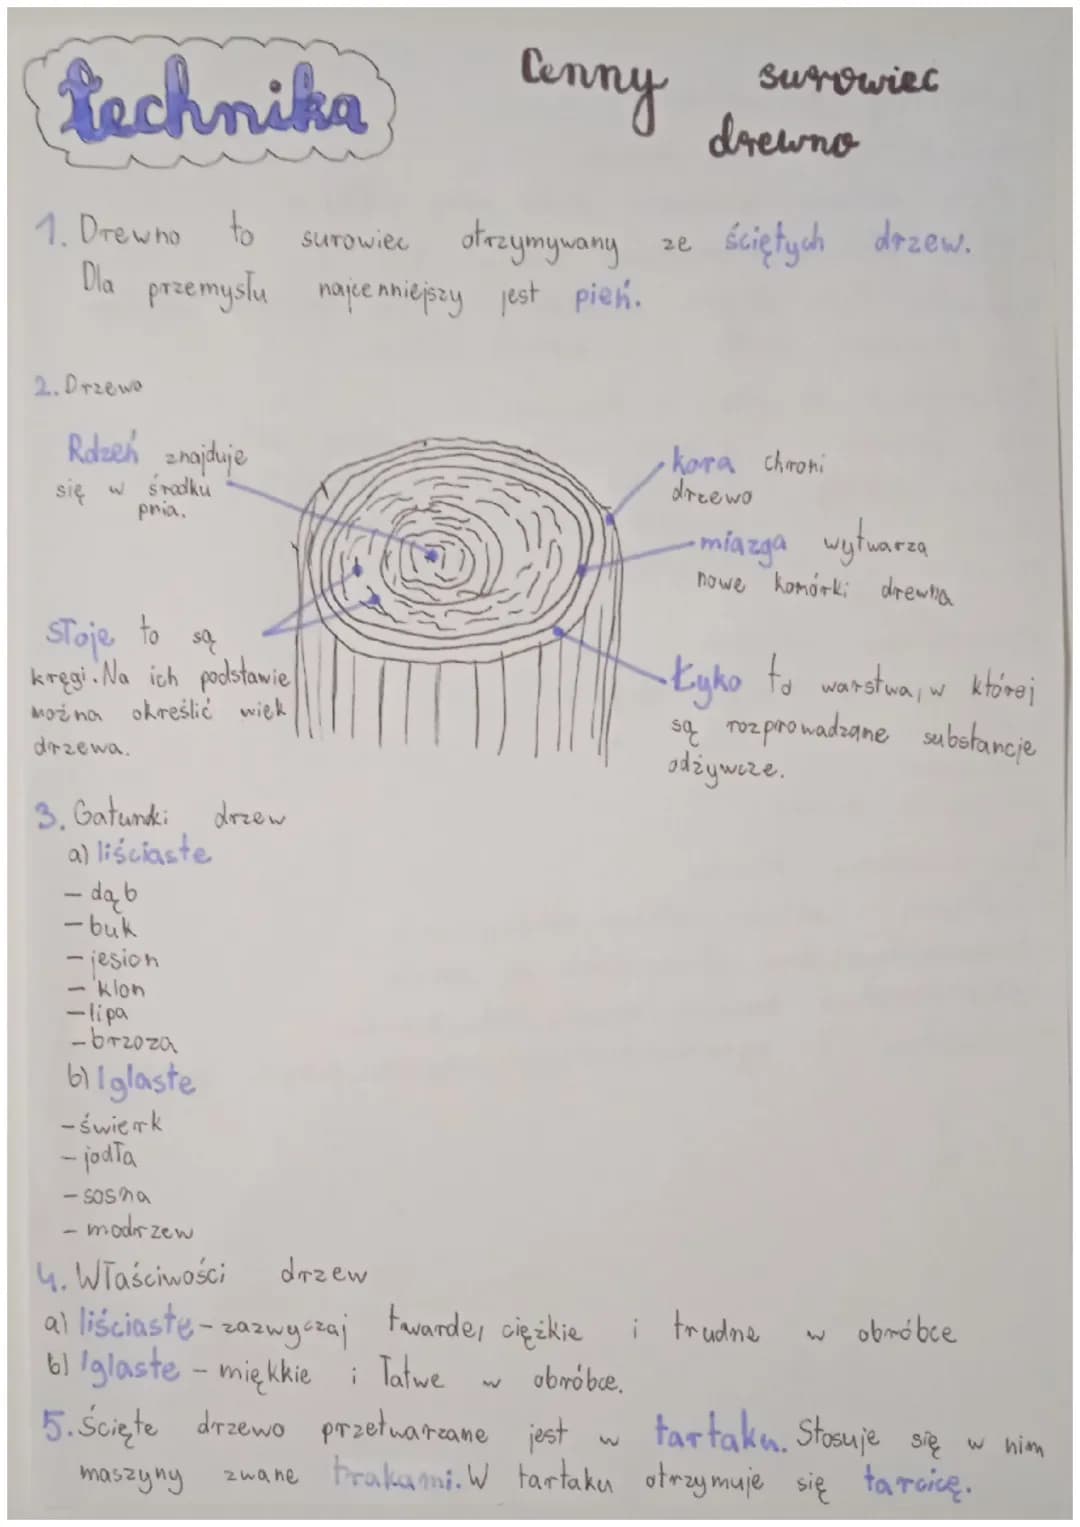 Technika
Cenny surowiec
drewno
1. Drewno to surowiec otrzymywany ze ściętych drzew.
Dla przemysłu najcenniejszy jest pień.
2. Drzewo
Rdzeń znajduje
się w środku
pnia.
Słoje to są
kręgi. Na ich podstawie
można określić wiek
drzewa.
kora chroni
drzewo
miazga wytwarza
nowe komórki drewna
Łyko to warstwa, w której
są rozprowadzane substancje
odżywcze.
3. Gatunki drzew
a) liściaste
- dąb
- buk
- jesion
- klon
- lipa
- brzoza
b) Iglaste
- świerk
- jodła
- sosna
- modrzew
4. Właściwości drzew
a) liściaste - zazwyczaj twarde, ciężkie i trudne w obróbce
b) Iglaste - miękkie i łatwe w obróbce.
5. Ścięte drzewo przetwarzane jest w tartaku. Stosuje się w nim
maszyny zwane trakami. W tartaku otrzymuje się tarcicę.